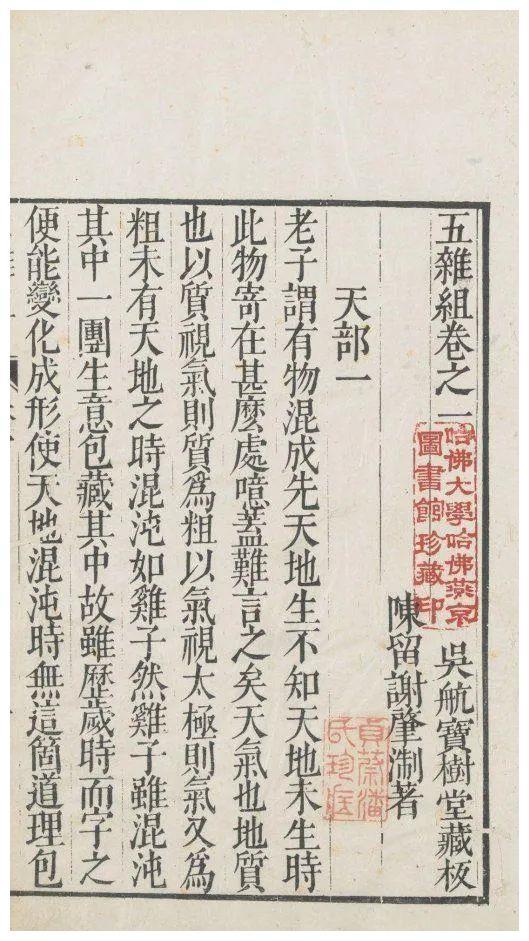 五雜組卷之一
吳航寶樹堂藏板
哈佛大學哈佛燕京
圖書館珍藏印
陳留謝肇淛著
天部一
老子謂有物混成先天地生不知天地未生時
此物寄在甚麽處噫蓋難言之矣天氣也地質
也以質視氣則質爲粗以氣視太極則氣又爲
粗未有天地之時混沌如雞子然雞子雖混沌
其中一團生意包藏其中故雖歷歲時而字之
便能變化成形使天地混沌時無這箇道理包